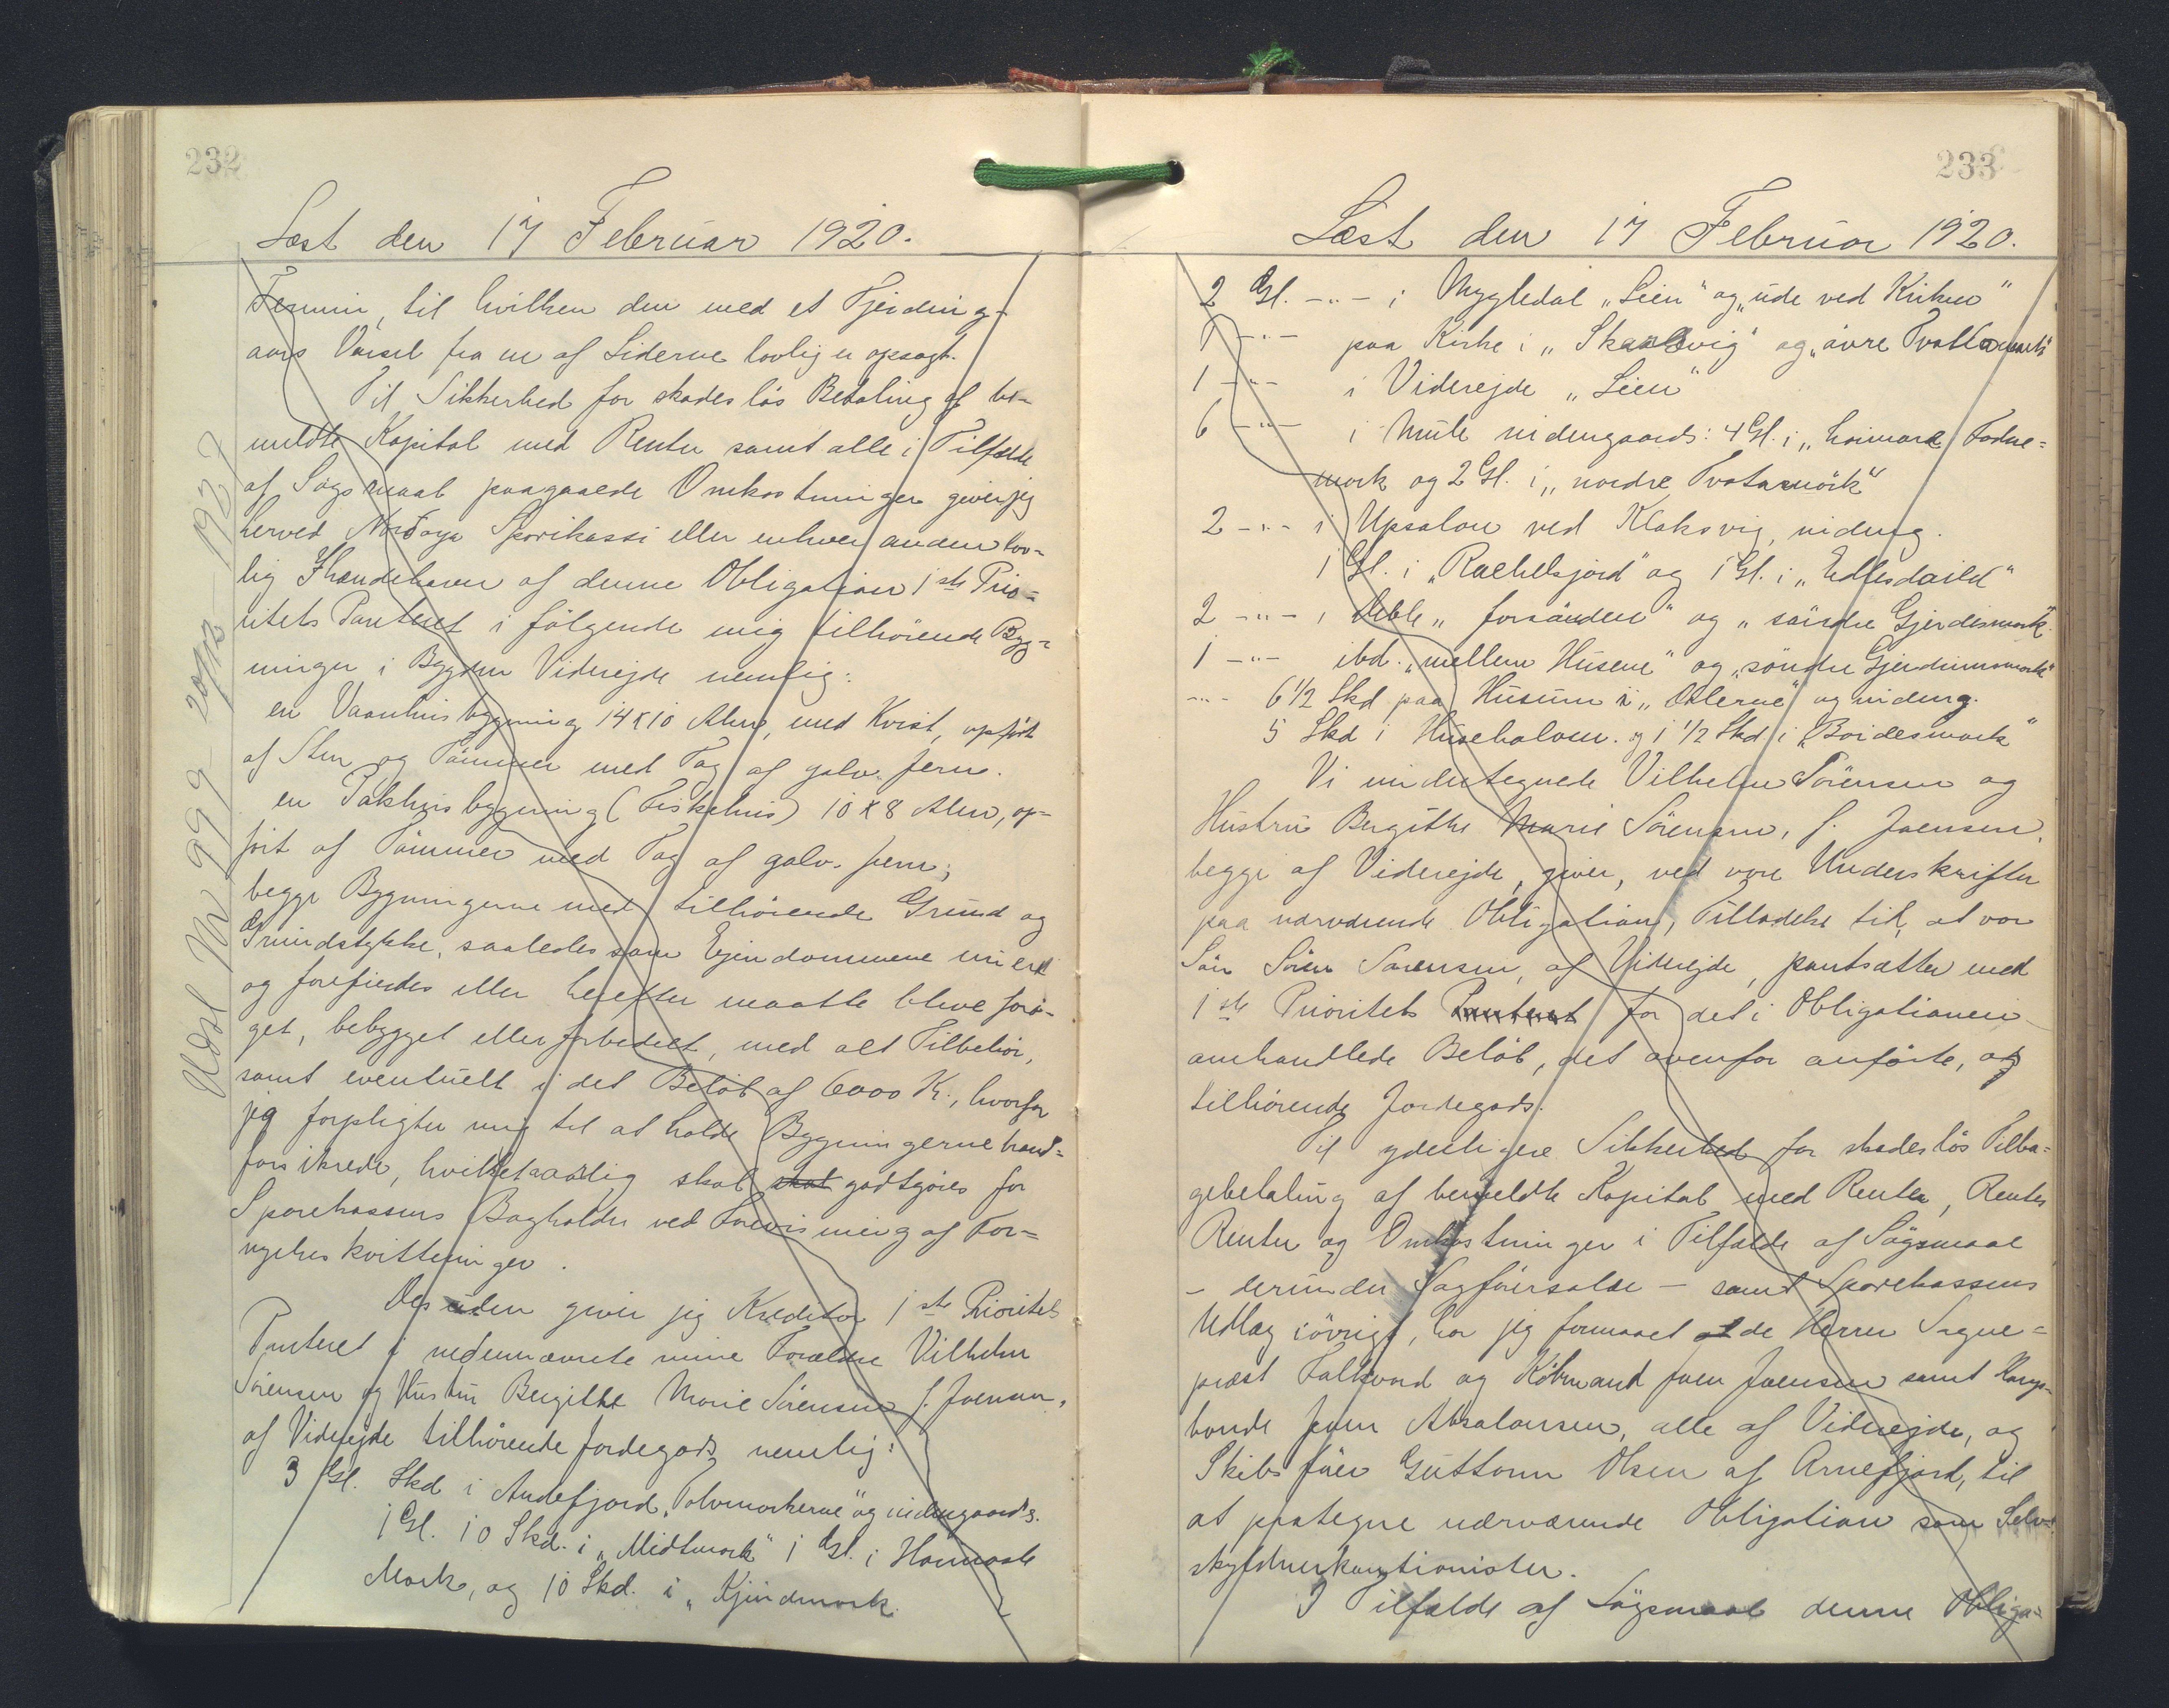 232
Læst den 17 Februar 1920.
Termin, til hvilken den med et Fjerding-
aars Varsel fra en af Siderne lovlig er opsagt.
Til Sikkerhed for skadeslös Betaling af be-
meldte Kapital med Renter samt alle i Tilfælde
af Sögsmaal paagaaede Omkostninger giver jeg
herved Norðoya Sparikassi eller enhver anden lov-
lig Ihændehaver af denne Obligation 1ste Prio=
ritets Panteret i fölgende mig tilhörende Byg=
ninger i Bygden Viderejde nemlig:
en Vaanhusbygning 14x10 Alen, med Kvist, opfört
af Sten og Tömmer med Tag af galv. Jern.
en Pakhusbygning (Fiskehus) 10x8 Alen, op=
fört af Tömmer med Tag af galv. Jern;
begge Bygningerne med tilhörende Grund og
Grundstykke, saaledes som Ejendommene nu er
og forefindes eller herefter maatte blive forö-
get, bebygget eller forbedret, med alt Tilbehör,
samt eventuelt i det Belöb af 6000 Kr., hvorfor
jeg forpligter mig til at holde Bygningerne brand=
forsikrede, hvilket aarlig skal skal godtgöres for
Sparekassens Bogholder ved Forevisning af For=
nyelseskvitteringer.
Desuden giver jeg Kreditor 1ste Prioritets
Panteret i nedennævnte mine Forældre Vilhelm
Sörensen og Hustru Bergithe Marie Sörensen f. Joensen,
af Viderejde tilhörende Jordegods nemlig:
3 Gl. Skd i Andefjord, "Tolvmorkerne" og indengaards.
1 Gl. 10 Skd. i "Midtmork" 1 Gl. i
Mork, og 10 Skd. i "Kjindmork.
Udsl Nr 999 - 1927
233
Læst den 17 Februar 1920.
2 Gl. -"- i Mygledal "Lien" og "ude ved Kirken"
1 -"- paa Kirke i "Skaalvig" og "övre
1 -"- i Viderejde "Lien"
6 -"- i Mule indengaards: 4 Gl. i "
mork og 2 Gl. i "nordre
2 -"- i Upsalon ved Klaksvig, indeng.
1 Gl. i "Rachelsjord" og 1 Gl. i "
2 -"- i Deble " og "söndre Gjerdesmork"
1 -"- ibd. "mellem Husene" og "söndre
-"- 6 1/2 Skd. paa Husum i " og indeng.
5 Skd i Huseholmen. og 1 1/2 Skd i "Boidesmork"
Vi undertegnede Vilhelm Sörensen og
Hustru Bergithe Marie Sörensen, f. Joensen,
begge af Viderejde, giver, ved vore Underskrifter
paa nærværende Obligation, Tilladelse til, at vor
Sön Sören Sörensen, af Viderejde, pantsætter med
1ste Prioritets Panteret for det i Obligationen
omhandlede Belöb, det ovenfor anförte, os
tilhörende Jordegods.
Til yderligere Sikkerhed for skadeslös Tilba=
gebetaling af bemeldte Kapital med Renter, Renters
Renter og Omkostninger i Tilfælde af Sögsmaal
- derunder Sagförersalær - samt Sparekassens
Udlæg iövrigt, har jeg formaaet de Herrer Sogne=
præst Falkvard og Köbmand Joen Joensen samt Kongs=
bonde Joen Absalonsen, alle af Viderejde, og
Skibsförer Guttorm Olsen af Arnefjord, til
at paategne nærværende Obligation som Selv=
skyldnerkautionister.
I Tilfælde af Sögsmaal denne Obliga=